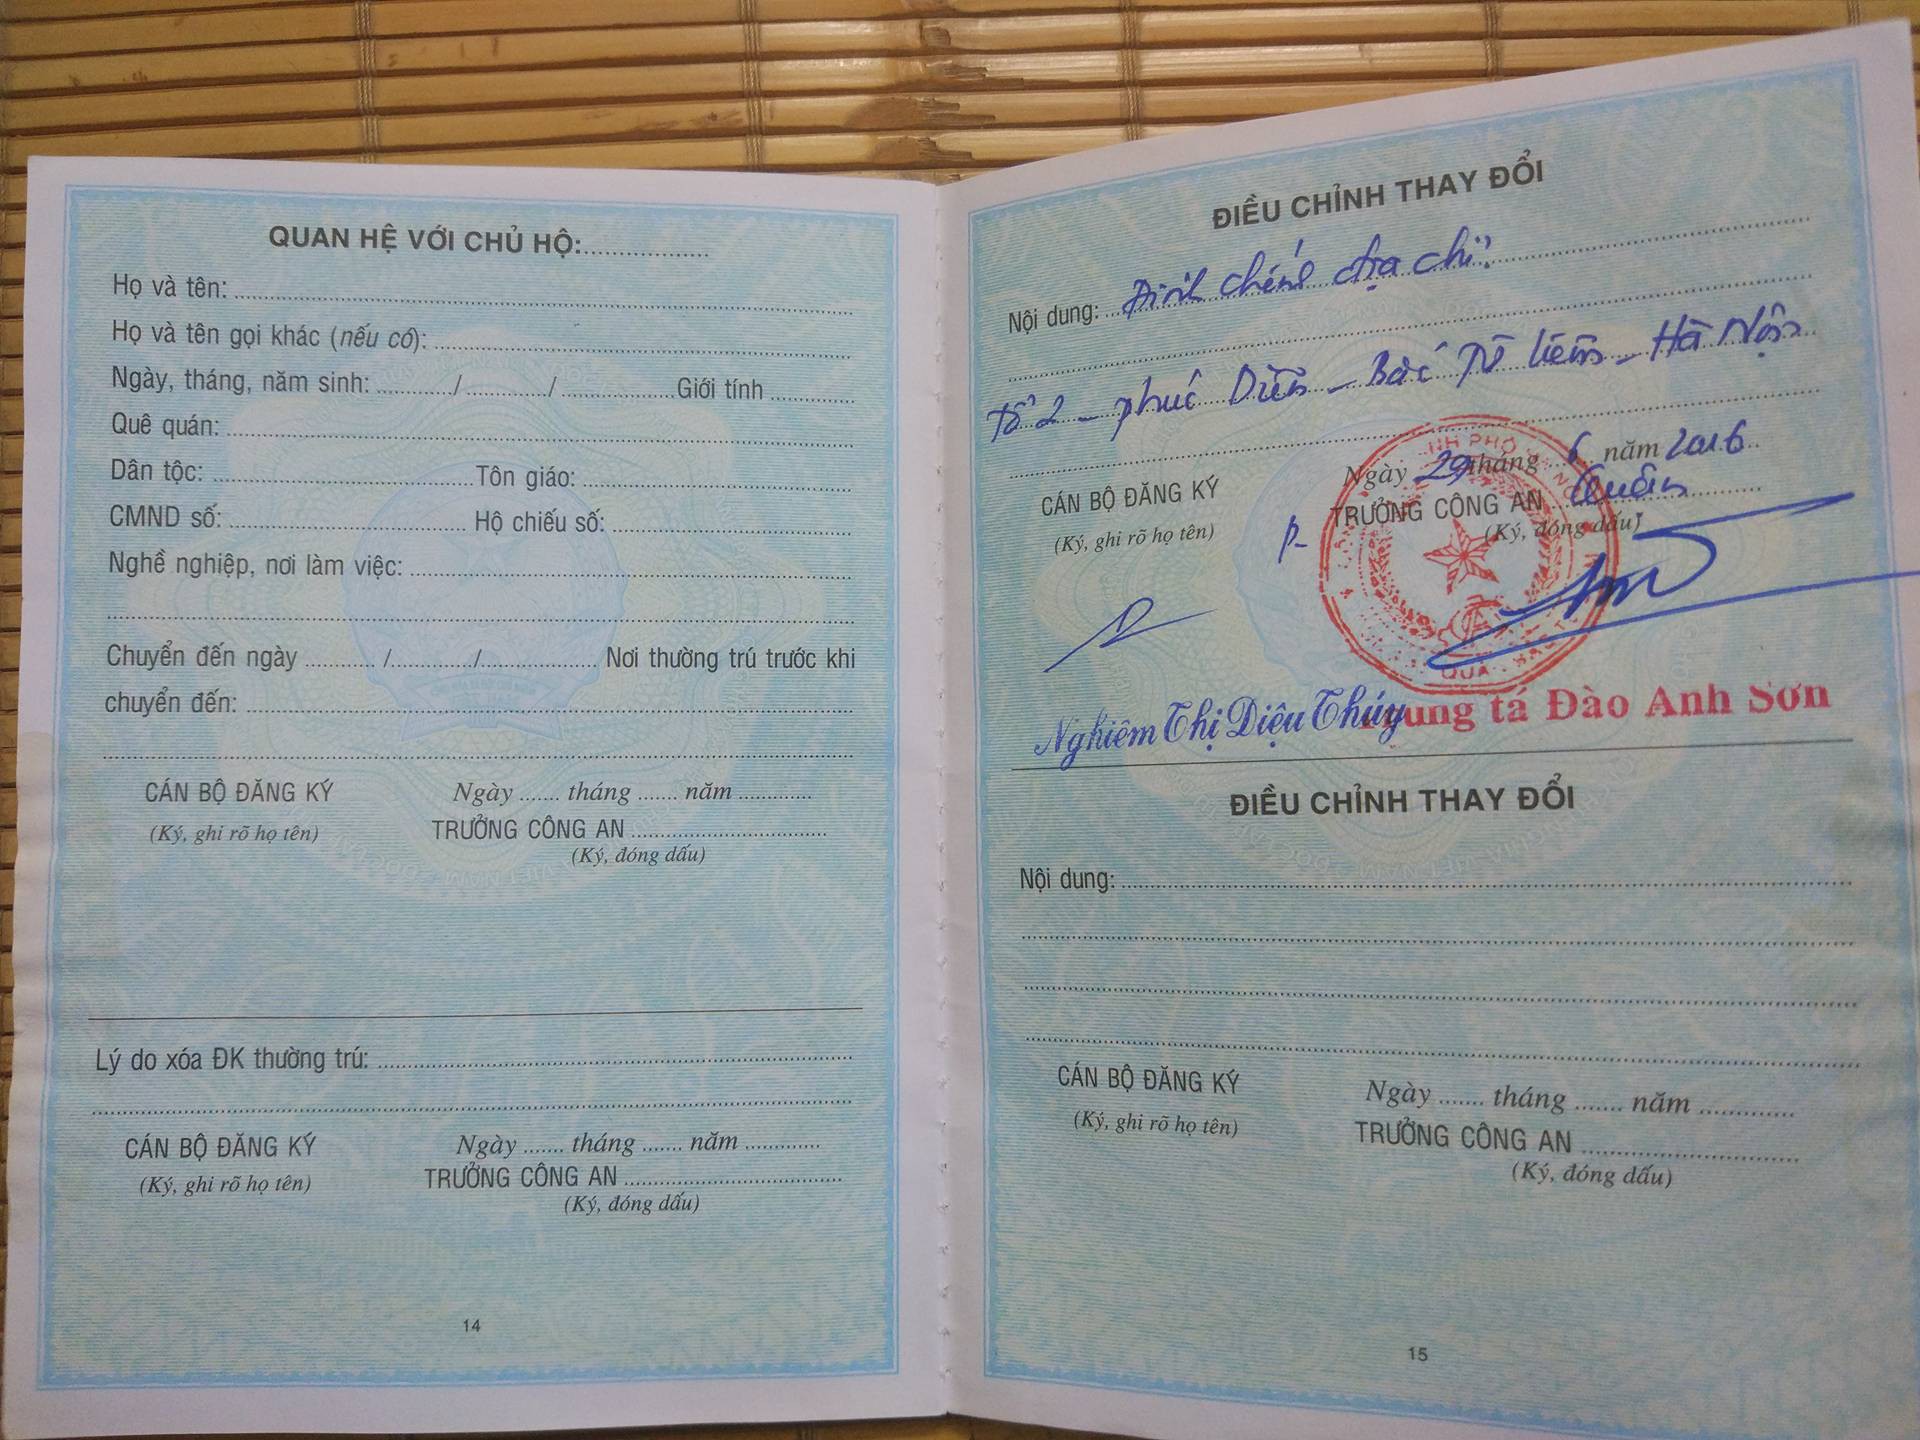 QUAN HỆ VỚI CHỦ HỘ:..................
Họ và tên:
Họ và tên gọi khác (nếu có):
Ngày, tháng, năm sinh: ........../ ........../ .............. Giới tính ............
Quê quán:
Dân tộc: .................... Tôn giáo:
CMND số: .................... Hộ chiếu số:
Nghề nghiệp, nơi làm việc:
Chuyển đến ngày ........... /............/................. Nơi thường trú trước khi
chuyển đến:
CÁN BỘ ĐĂNG KÝ
(Ký, ghi rõ họ tên)
Ngày ....... tháng ....... năm .............
TRƯỞNG CÔNG AN
(Ký, đóng dấu)
Lý do xóa ĐK thường trú:
CÁN BỘ ĐĂNG KÝ
(Ký, ghi rõ họ tên)
Ngày ....... tháng ....... năm .............
TRƯỞNG CÔNG AN
(Ký, đóng dấu)
14
ĐIỀU CHỈNH THAY ĐỔI
Nội dung: Đính chính địa chỉ:
Tổ 2 - phúc Diễn - Bắc Từ Liêm - Hà Nội
Ngày 29 tháng 6 năm 2016
CÁN BỘ ĐĂNG KÝ
(Ký, ghi rõ họ tên)
P- TRƯỞNG CÔNG AN Quận
(Ký, đóng dấu)
Nghiêm Thị Diệu Thúy
Trung tá Đào Anh Sơn
ĐIỀU CHỈNH THAY ĐỔI
Nội dung:
CÁN BỘ ĐĂNG KÝ
(Ký, ghi rõ họ tên)
Ngày ....... tháng ....... năm .............
TRƯỞNG CÔNG AN
(Ký, đóng dấu)
15